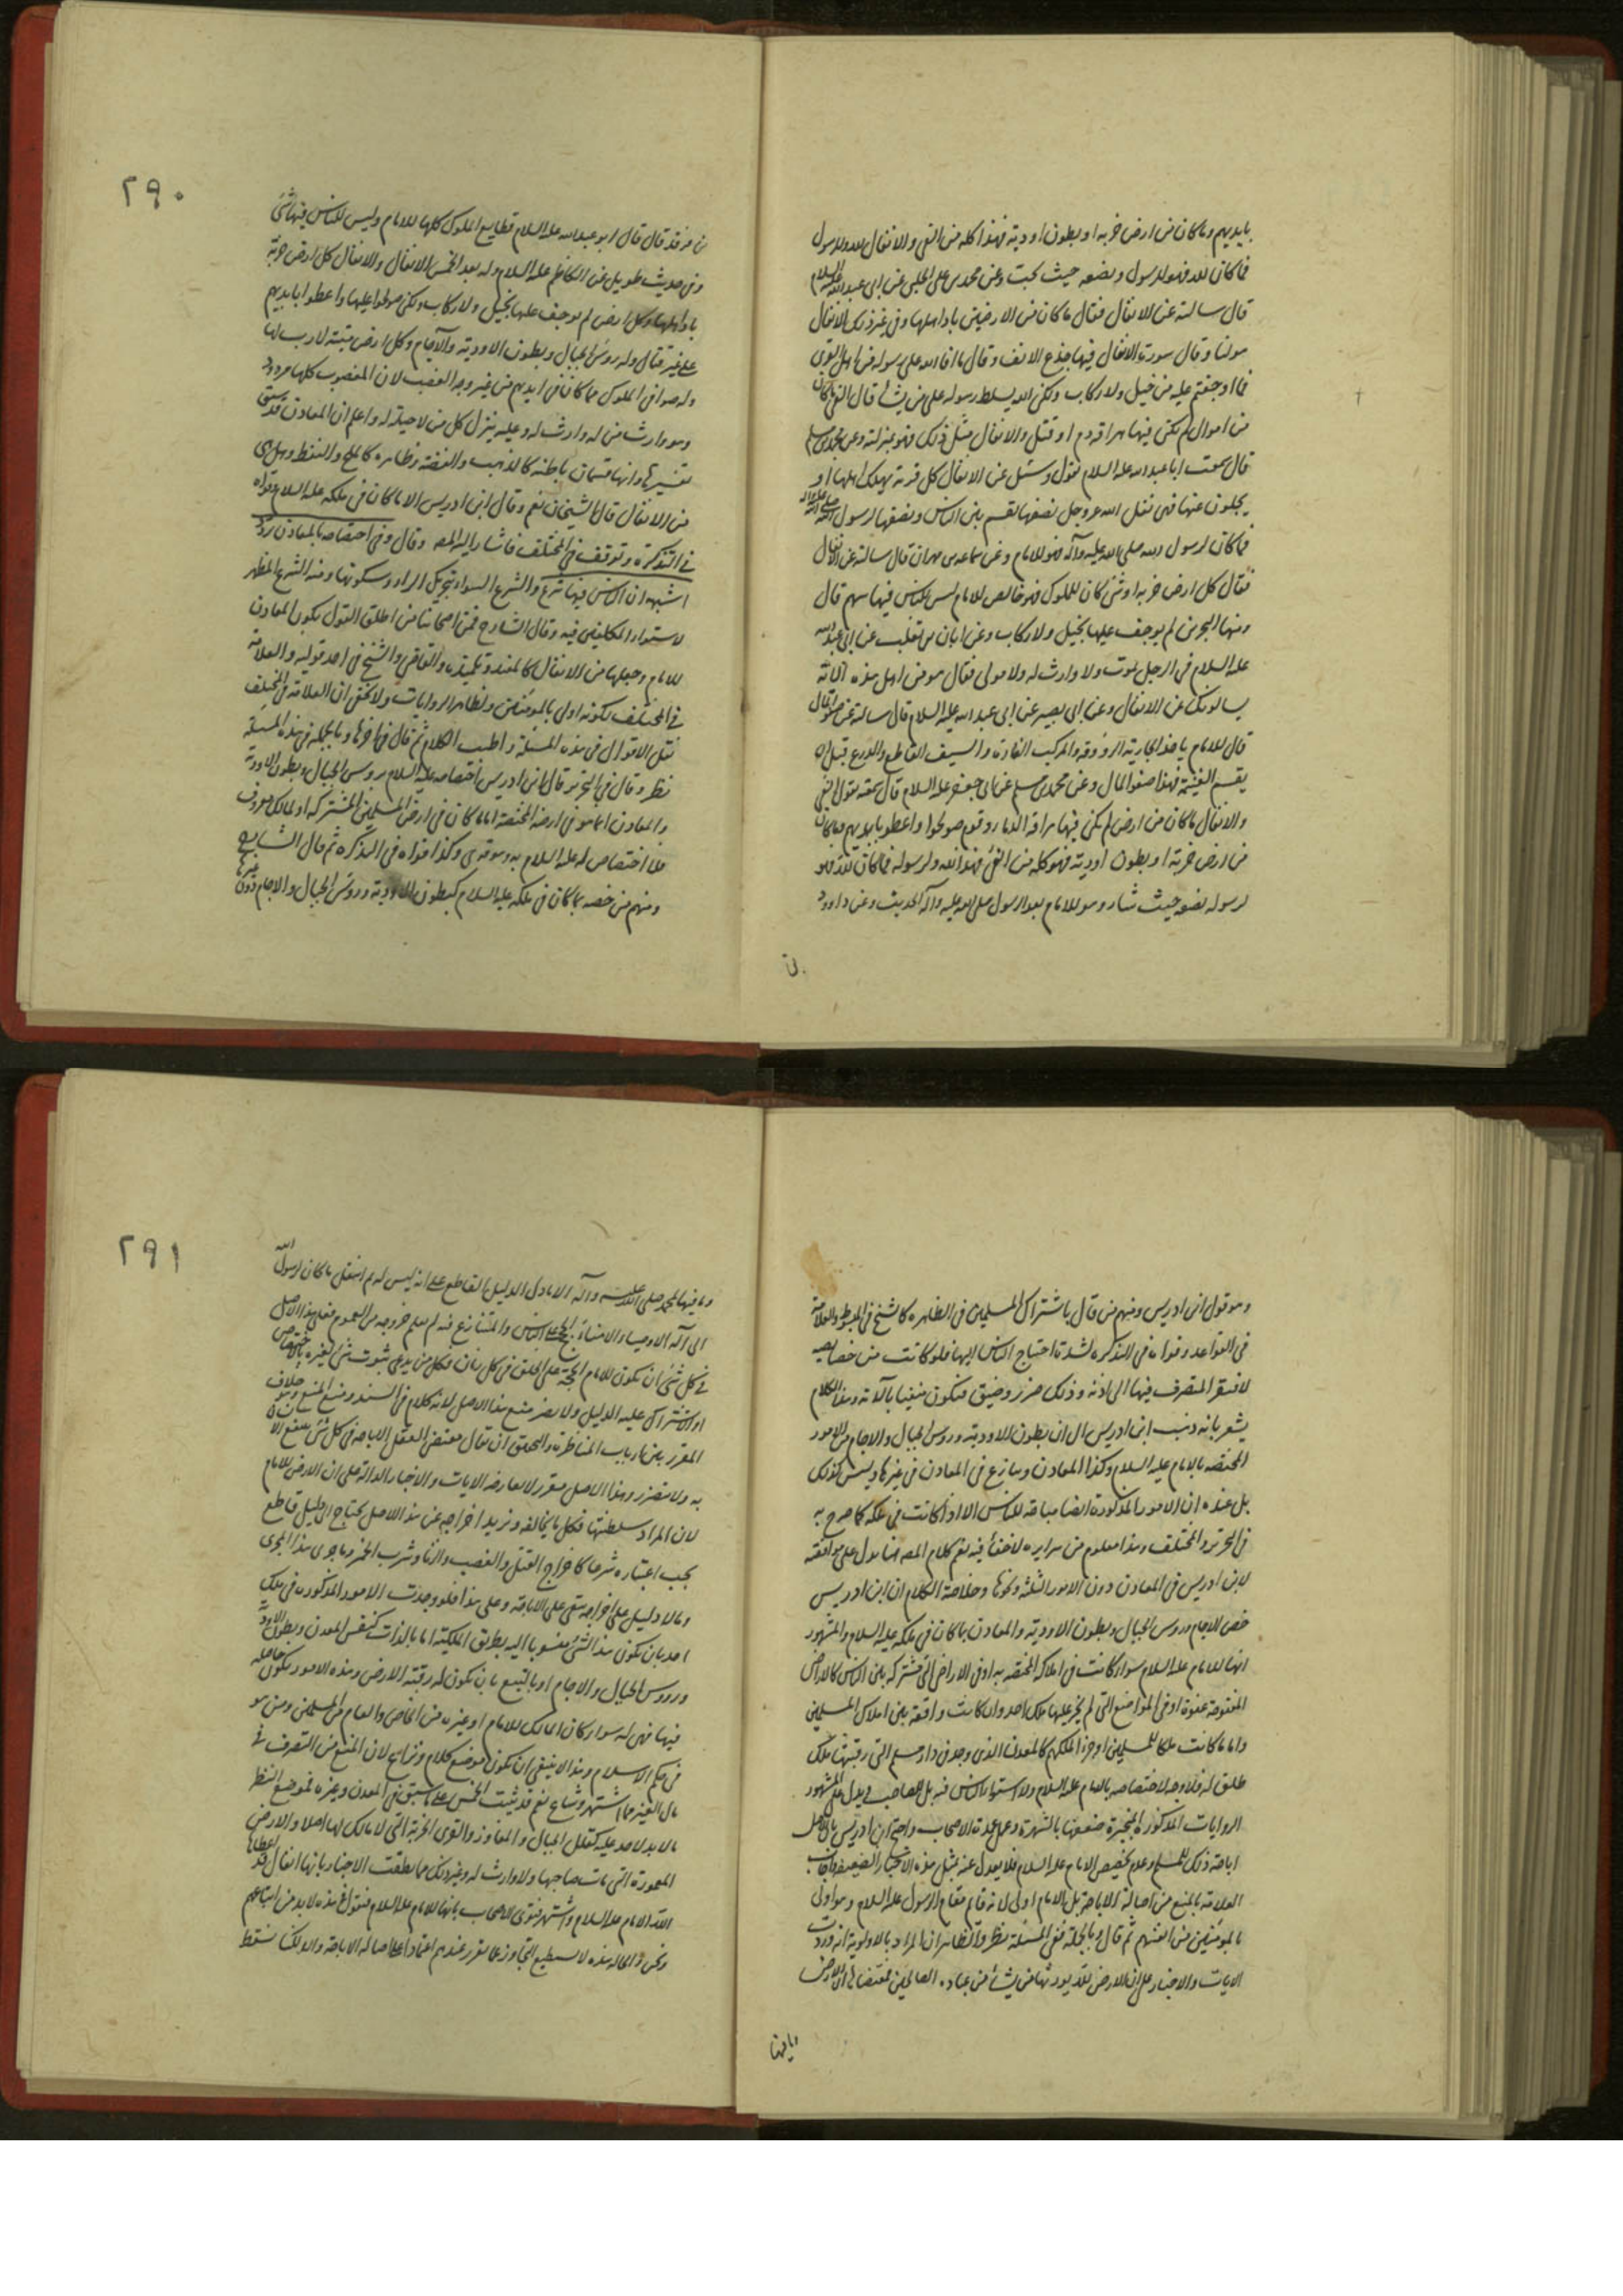 بايديهم وما كان من ارض خربه او بطون اودية فهذا كله من الفئ والانفال لله وللرسول
فما كان لله فهو للرسول ويضعه حيث يحب وعن محمد بن على الحلبى عن ابى عبدالله عليه السلام
قال سالته عن الانفال فقال ما كان من الارضين باد اهلها وفى غير ذلك الانفال
هو لنا وقال سورة الانفال فيها جذع الانف وقال ما افاء الله على رسوله من اهل القرى
فما اوجفتم عليه من خيل ولا ركاب ولكن الله يسلط رسوله على من يشأ قال الفئ ما كان
من اموال لم يكن فيها هراقة دم او قتل والانفال مثل ذلك فهو بمنزلته وعن محمد بن مسلم
قال سمعت ابا عبدالله عليه السلام يقول وسئل عن الانفال كل قرية يهلك اهلها او
يجلون عنها فهى نفل الله عز وجل نصفها يقسم بين الناس ونصفها لرسول الله صلى الله عليه واله
فما كان لرسول الله صلى الله عليه وآله فهو للامام وعن سماعة بن مهران قال سالته عن الانفال
فقال كل ارض خربه او شئ كان للملوك فهو خالص للامام ليس للناس فيها سهم قال
ومنها البحرين لم يوجف عليها بخيل ولا ركاب وعن ابان بن تغلب عن ابى عبدالله
عليه السلام فى الرجل يموت ولا وارث له ولا مولى فقال هو من اهل هذه الاية
يسالونك عن الانفال وعن ابى بصير عن ابى عبدالله عليه السلام قال سالته عن صفو المال
قال للامام ياخذ الجارية الروقه والمركب الفاره والسيف القاطع والدرع قبل ان
يقسم الغنيمة فهذا صفو المال وعن محمد بن مسلم عن ابى جعفر عليه السلام قال سمعته يقول الفئ
والانفال ما كان من ارض لم يكن فيها هراقة الدماء وقوم صولحوا واعطوا بايديهم وما كان
من ارض خربة او بطون اودية فهو كله من الفئ فهذا لله ولرسوله فما كان لله فهو
لرسوله يضعه حيث شاء وهو للامام بعد الرسول صلى الله عليه وآله الحديث وعن داود
بن
٢٩٠
بن فرقد قال قال ابو عبدالله عليه السلام قطايع الملوك كلها للامام وليس للناس فيها شئ
وفى حديث طويل عن الكاظم عليه السلام وله بعد الخمس الانفال والانفال كل ارض خربة
باد اهلها وكل ارض لم يوجف عليها بخيل ولا ركاب ولكن صولحوا عليها واعطوا بايديهم
على غير قتال وله رؤس الجبال وبطون الاودية والآجام وكل ارض ميتة لا رب لها
وله صوافى الملوك مما كان فى ايديهم من غير وجه الغصب لان المغصوب كلها مردود
وهو وارث من لا وارث له وعليه ينزل كل من لا حيلة له واعلم ان المعادن قد سبق
تفسيرها وانها قسمان باطنه كالذهب والفضة وظاهره كالملح والنفط وهل هى
من الانفال قال الشيخان نعم وقال ابن ادريس الا ما كان فى ملكه عليه السلام وقواه
فى التذكرة وتوقف فى المختلف فاشار اليه المصر وقال وفى اختصاصه بالمعادن تردد
اشبهه ان الناس فيها شرع والشرع السواء بتحريك الراء وسكونها ومنه الشرع المطهر
لاستواء المكلفين فيه وقال الشارح فمن اصحابنا من اطلق القول بكون المعادن
للامام وجعلها من الانفال كالمفيد وتلميذه والقاضى والشيخ فى احد قوليه والعلامة
فى المختلف لكونه اولى بالمؤمنين ولظاهر الروايات ولا يخفى ان العلامة فى المختلف
نقل الاقوال فى هذه المسئلة واطنب الكلام ثم قال فى اخرها وبالجملة فى هذه المسئلة
نظر وقال فى التحرير قال ابن ادريس اختصاصه عليه السلام برؤس الجبال وبطون الاودية
والمعادن انما هو فى ارضه المختصة اما ما كان فى ارض المسلمين المشتركه او لمالك معروف
فلا اختصاص له عليه السلام به وهو قوى وكذا قواه فى التذكره ثم قال الشارح
ومنهم من خصه بما كان فى ملكه عليه السلام كبطون الاودية ورؤس الجبال والاجام دون غيرها
وهو قول ابن ادريس ومنهم من قال باشتراك المسلمين فى الظاهره كالشيخ فى المبسوط والعلامة
فى القواعد وقواه فى التذكره لشدة احتياج الناس اليها فلو كانت من خصايصه
لافتقر المتصرف فيها الى اذنه وذلك ضرر وضيق فيكون منفيا بآلاته وهذا الكلام
يشعر بانه ذهب ابن ادريس الى ان بطون الاودية ورؤس الجبال والاجام من الامور
المختصه بالامام عليه السلام وكذا المعادن وينازع فى المعادن فى غيرها وليس كذلك
بل عنده ان الامور المذكورة ايضا مباحة للناس الا اذا كانت فى ملكه كما صرح به
فى التحرير والمختلف وهذا معلوم من سرايره لا خفاء فيه نعم كلام المصر هنا يدل على موافقته
لابن ادريس فى المعادن دون الامور الثلثة ونحوها وخلاصة الكلام ان ابن ادريس
خص الاجام ورؤس الجبال وبطون الاودية والمعادن بما كان فى ملكه عليه السلام والمشهور
انها للامام عليه السلام سواء كانت فى املاكه المختصه به او فى الاراضى التى مشتركه بين الناس كالارض
المفتوحة عنوة او فى المواضع التى لم يجر عليها ملك احد وان كانت واقعة بين املاك المسلمين
واما ما كانت ملكا للمسلمين او جزء الملكهم كالمعدن الذى وجد فى دار مسلم التى رقبتها ملك
طلق له فلا وجه لاختصاصه بالامام عليه السلام ولا استواء الناس فيه بل لصاحبه ويدل على المشهور
الروايات المذكورة المنجبرة ضعفها بالشهرة وعمل عمدة الاصحاب واحتج ابن ادريس بان الاصل
اباحة ذلك للمسلم وعدم تخصيص الامام عليه السلام فلا يعدل عنه بمثل هذه الاخبار الضعيفة واجاب
العلامة بالمنع من اصالة الاباحة بل بالامام اولى لانه قائم مقام الرسول عليه السلام وهو اولى
بالمؤمنين من انفسهم ثم قال وبالجملة ففى المسئلة نظر والظاهر ان المراد بالاولوية انه وردت
الايات والاخبار على ان الارض لله يورثها من يشأ من عباده الصالحين فمقتضاها ان الارض
وما فيها
٢٩١
وما فيها لمحمد صلى الله عليه وآله الا ما دل الدليل القاطع على انه ليس له ثم انتقل ما كان لرسول الله
الى آله الاوصياء الامناء الحجج على الناس والمتنازع فيه لم يعلم خروجه من العموم فعلى هذا الاصل
فى كل شئ ان يكون للامام الحجة على الخلق فى كل زمان فكل من يدعى ثبوت شئ لغيره بالاختصاص
او الاشتراك عليه الدليل ولا يضر منع هذا الاصل لانه كلام فى السند ومنع المنع وهو خلاف
المقرر بين ارباب المناظرة والتحقيق ان يقال مقتضى العقل الاباحة فى كل شئ ينتفع الانسان
به ولا يتضرر وهذا الاصل مقرر لا يعارضه الايات والاخبار الدالة على ان الارض للامام
لان المراد سلطنتها فكل ما يخالفه ونريد اخراجه عن هذا الاصل يحتاج الى دليل قاطع
يجب اعتباره شرعا كاخراج القتل والغصب والزنا وشرب الخمر وما جرى هذا المجرى
وما لا دليل على اخراجه يبقى على الاباحة وعلى هذا فلو وجدت الامور المذكوره فى ملك
احد بان يكون هذا الشئ منسوبا اليه بطريق الملكية اما بالذات كنفس المعدن وبطون الاودية
ورؤوس الجبال والاجام او بالتبع بان يكون له رقبة الارض وهذه الامور يكون حاصله
فيها فهى له سواء كان المالك للامام او غيره من الخاص والعام من المسلمين ومن هو
فى حكم الاسلام وهذا لا ينبغى ان يكون موضع كلام ونزاع لان المنع من التصرف فى
مال الغير مما اشتهر وشاع نعم قد يثبت الخمس على ما سبق فى المعدن وغيره فموضع النظر
ما لا يد لاحد عليه كقلل الجبال والمفاوز والقرى الخربة التى لا مالك لها اصلا والارض
المعمورة التى مات صاحبها ولا وارث له وغير ذلك مما نطقت الاخبار بانها انفال قد اعطاها
الله الامام عليه السلام واشتهر فتوى الاصحاب بانها للامام عليه السلام فنقول هذه لا بد من اتباعهم
ونحن والحاله هذه لا نستطيع التجاوز عما تقرر عندهم اعتمادا على اصالة الاباحة والا لكنا نسقط